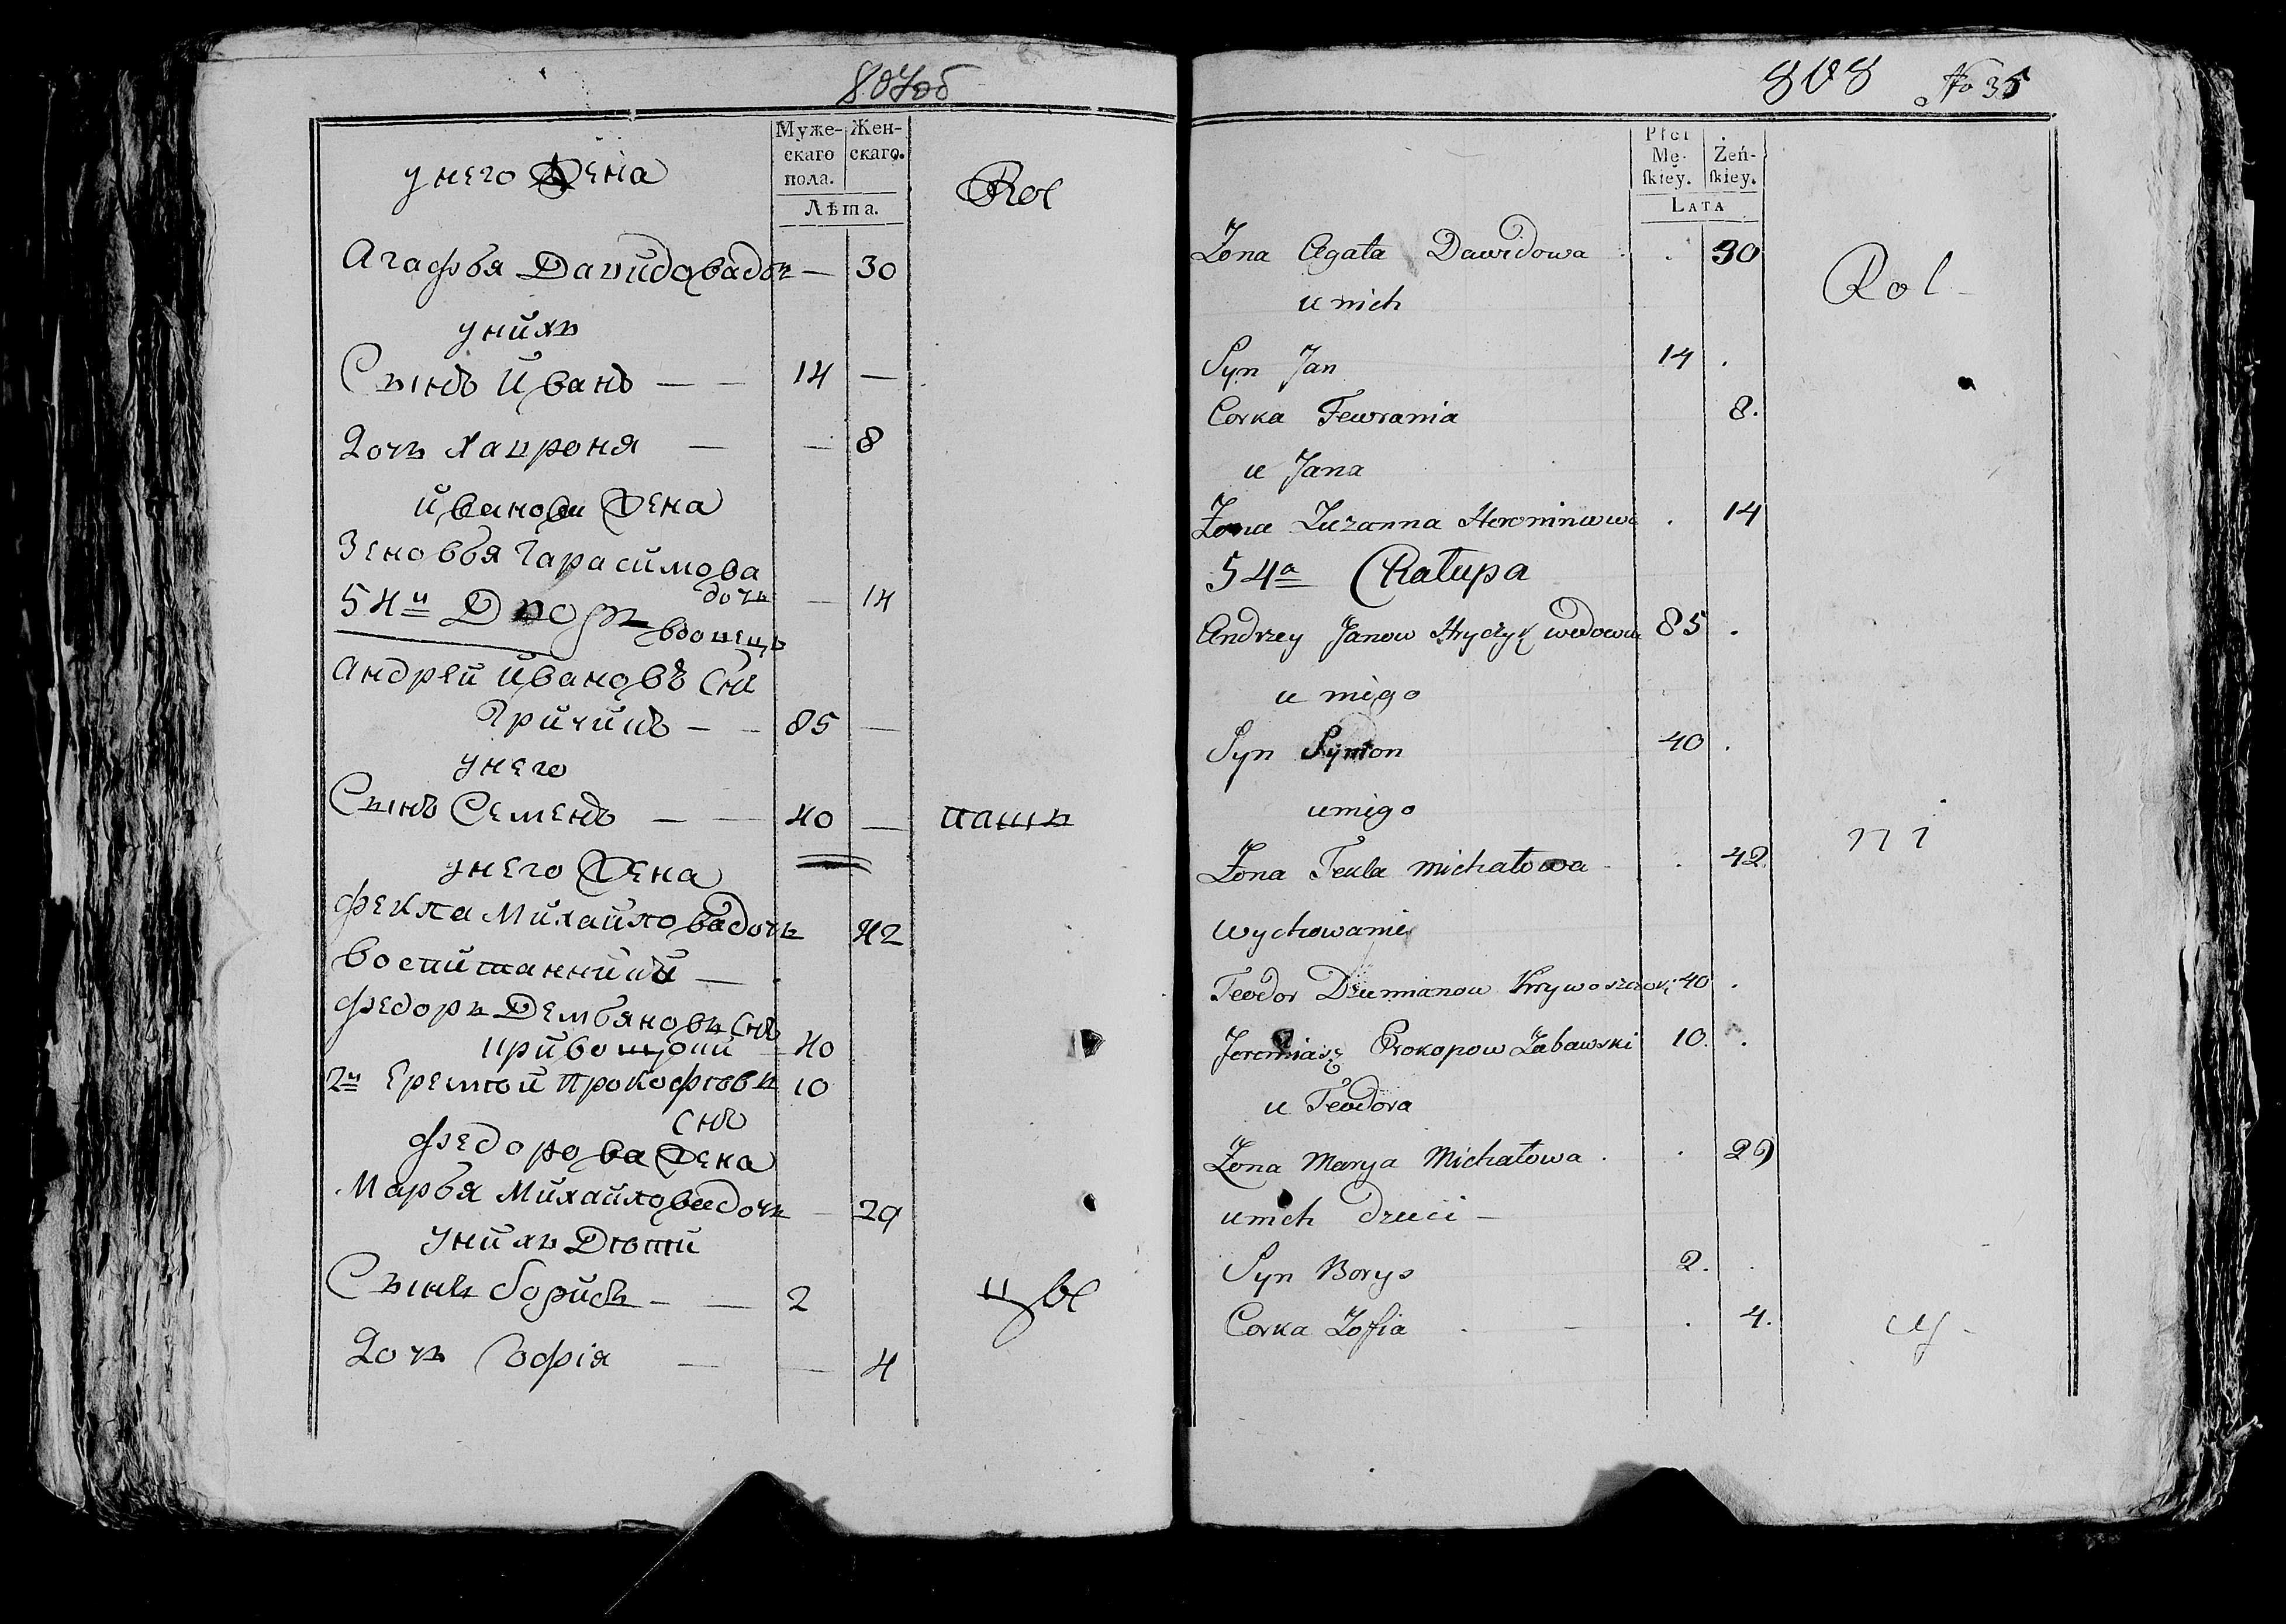 807об
Муже-
скаго
пола.
Жен-
скаго.
Лѣта.
у него Жена
Rol
Агафья Давидова дочь — 30
у нихъ
Сынъ Иванъ — — 14 —
Дочь Хавроня — — 8
Иванова Жена
Зеновья Гарасимова
дочь — 14
54й Дворъ
вдовецъ
Андрей Ивановъ Снъ
Гричикъ — — 85 —
у него
Сынъ Семенъ — — 40 — пашъ
у него Жена
Фекла Михайлова дочь 42
Воспитанники —
Федоръ Демьяновъ Снъ
Кривошокий — 40
2й Еремѣй Прокофѣвъ 10
Снъ
Федорова Жена
Марья Михайлова дочь — 29
У нихъ Дѣти
Сынъ Борисъ — — 2
цы
Дочь Софія — — 4
808 No 35
Płci
Mę-
skiey.
Żeń-
skiey.
LATA
Żona Agata Dawidowa . 30
Rol
u nich
Syn Jan 14 .
Corka Fewrania 8.
u Jana
Żona Zuzanna Heroninowa . 14
54a Chałupa
Andrzey Janow Hryczyk wdowiec 85 .
u niego
Syn Symon 40 .
u niego
Żona Tekla Michałowa . 42
ni
Wychowanie
Teodor Dziemianow Krywoszocki 40 .
Jeremiasz Prokopow Zabawski 10. .
u Teodora
Żona Marya Michałowa . . 29
u nich dzieci —
Syn Borys 2. .
Corka Zofia . — . 4.
cy